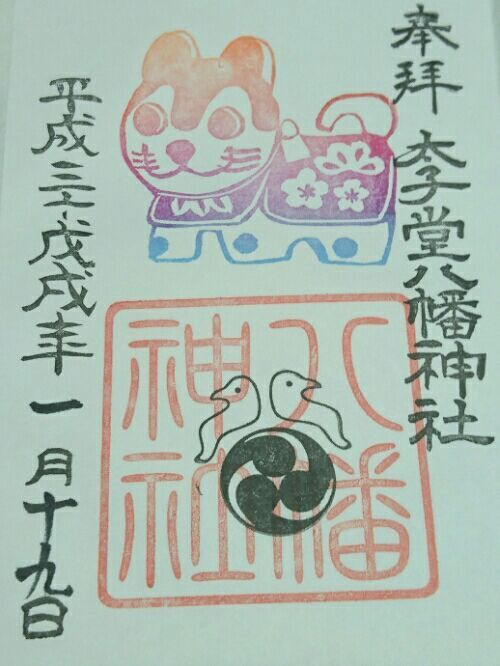 奉拝 太子堂八幡神社
八幡
神社
平成三十戊戌年一月十九日